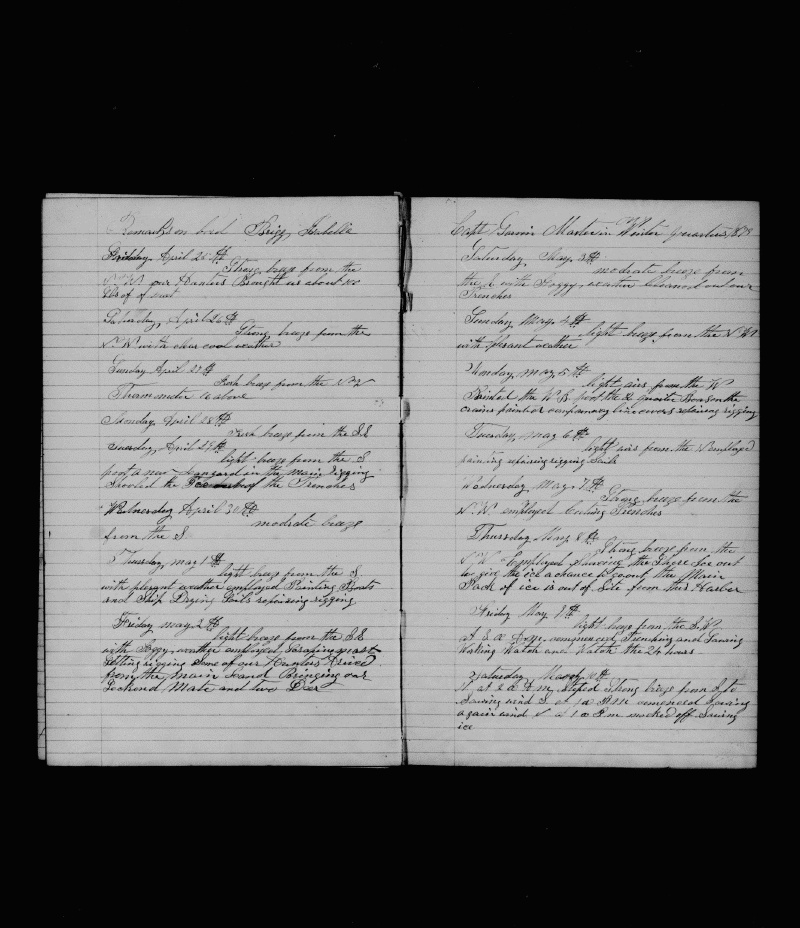 Remarks on bord Brigg Isabella
Friday, April 25th
Strong breze from the
N.W. our Hunters Brought us about 100
lbs of of meat
Saturday, April 26th
Strong breze from the
N.W. with clear cool weather
Sunday April 27th
Fresh breze from the N W
Thurmmuter a above
Monday April 28th
Fresh breze from the S.E
Tuesday, April 29th
light breze from the S
poot a new Lanyard in the Main rigging
Shoveled the of the Trenches
Wednesday April 30th
modrate breze
from the S
Thursday, may 1th
light breze from the S
with plesant weather employed Painting Boats
and Ship Drying Sails repairing rigging
Friday may 2th
light breeze from the S.E
with fogy weather employed, Scraping mast
Setting rigging Some of our Hunters arived
from the main Bringing our
Seckond Mate and two Deer
Capt Garvin Master in Winter quarters, 1879
Saturday, May, 3th
modrate breze from
the with Foggy, weather cleaned out our
Trenches
Sunday May 4th
light breze from the N W
with plesant weather
Monday, may 5th
light airs from the W
Painted the W. B. poot the 2 quarter Boas on the
crains paint or covers repairing rigging
Tuesday, may 6th
light airs from the N employed
repairing rigging Sails
Wednesday May 7th
Strong breeze from the
N.W. employed Trenches
Thursday May 8th
Strong breeze from the
N.W. Employed the Shore Ice out
to give the ice a chance to go out the Main
Pack of ice is out of Site from this Harbor
Friday May
light breze from the S.W
At commenced Trenching and Sawing
Waking Watch and Watch the 24 hours
Saturday
N at 2 strong breze from S to
Sawing wind S at commenced Sawing
again wind S at P.m nocked off Sawing
ice